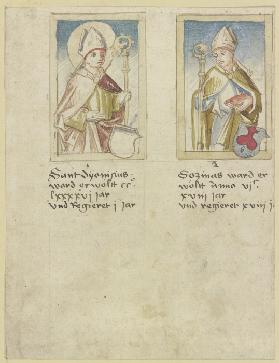 Sant dyonisius
ward erwölt cc°
lxxxxvj jar
vnd Regieret j jar
Sozmas ward er
wölt anno vjc
xviij jar
vnd regieret xviij j